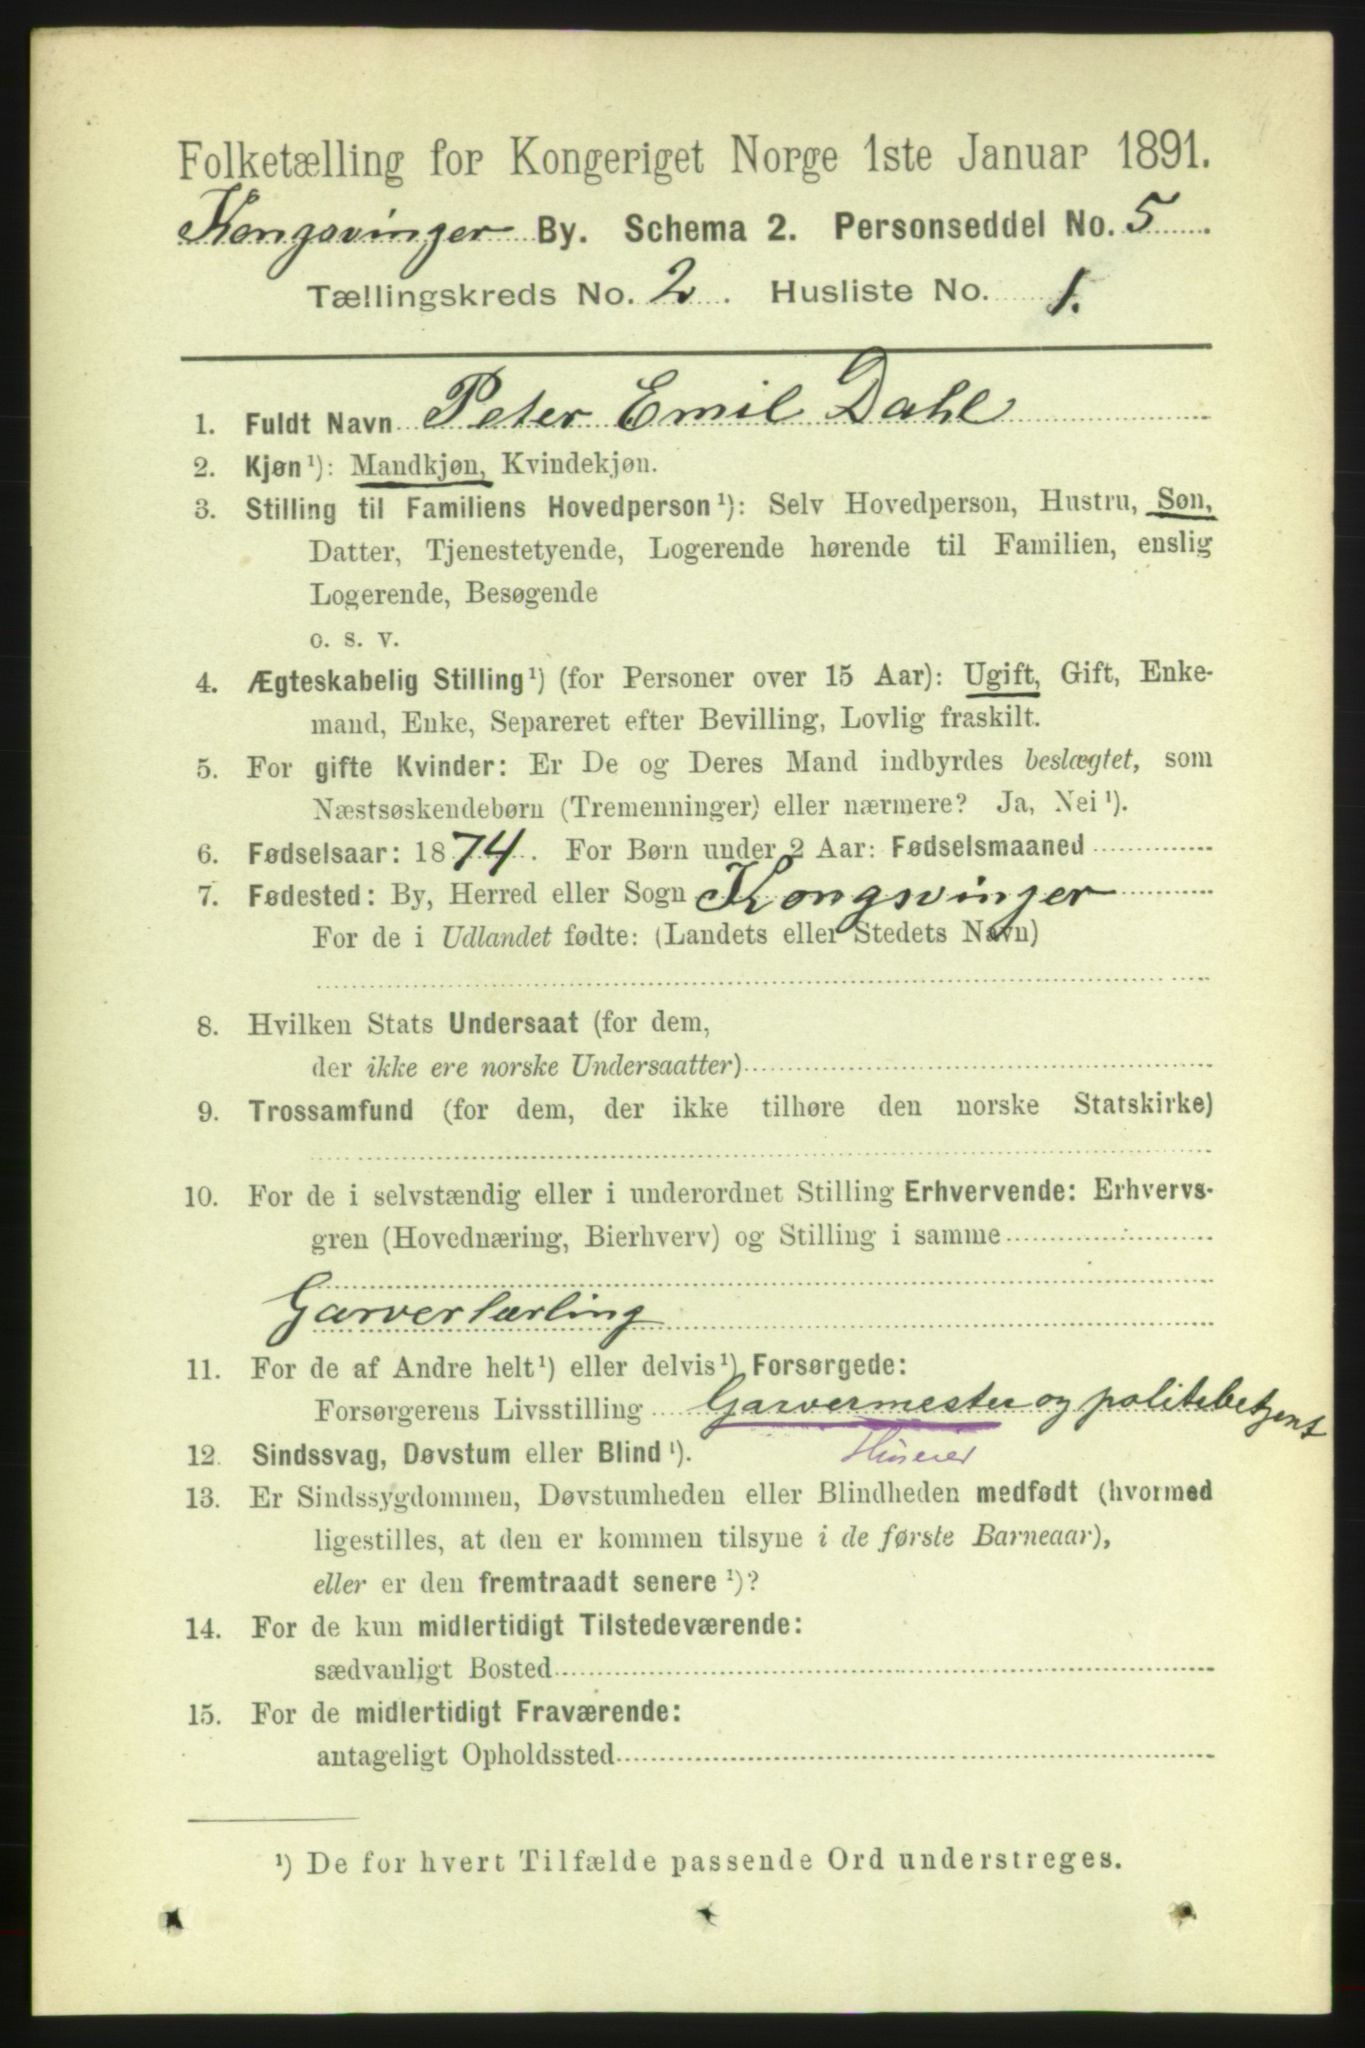 Folketælling for Kongeriget Norge 1ste Januar 1891.
Kongsvinger By. Schema 2. Personseddel No. 5
Tællingskreds No. 2. Husliste No. 1.
1. Fuldt Navn Peter Emil Dahl
2. Kjøn¹): Mandkjøn, Kvindekjøn.
3. Stilling til Familiens Hovedperson¹): Selv Hovedperson, Hustru, Søn,
Datter, Tjenestetyende, Logerende hørende til Familien, enslig
Logerende, Besøgende
o. s. v.
4. Ægteskabelig Stilling¹) (for Personer over 15 Aar): Ugift, Gift, Enke-
mand, Enke, Separeret efter Bevilling, Lovlig fraskilt.
5. For gifte Kvinder: Er De og Deres Mand indbyrdes beslægtet, som
Næstsøskendebørn (Tremenninger) eller nærmere? Ja, Nei¹).
6. Fødselsaar: 1874. For Børn under 2 Aar: Fødselsmaaned
7. Fødested: By, Herred eller Sogn Kongsvinger
For de i Udlandet fødte: (Landets eller Stedets Navn)
8. Hvilken Stats Undersaat (for dem,
der ikke ere norske Undersaatter)
9. Trossamfund (for dem, der ikke tilhøre den norske Statskirke)
10. For de i selvstændig eller i underordnet Stilling Erhvervende: Erhvervs-
gren (Hovednæring, Bierhverv) og Stilling i samme
Garverlærling
11. For de af Andre helt¹) eller delvis¹) Forsørgede:
Forsørgerens Livsstilling Garvermester og politibetjent
Huseier
12. Sindssvag, Døvstum eller Blind¹).
13. Er Sindssygdommen, Døvstumheden eller Blindheden medfødt (hvormed
ligestilles, at den er kommen tilsyne i de første Barneaar),
eller er den fremtraadt senere¹)?
14. For de kun midlertidigt Tilstedeværende:
sædvanligt Bosted
15. For de midlertidigt Fraværende:
antageligt Opholdssted
¹) De for hvert Tilfælde passende Ord understreges.